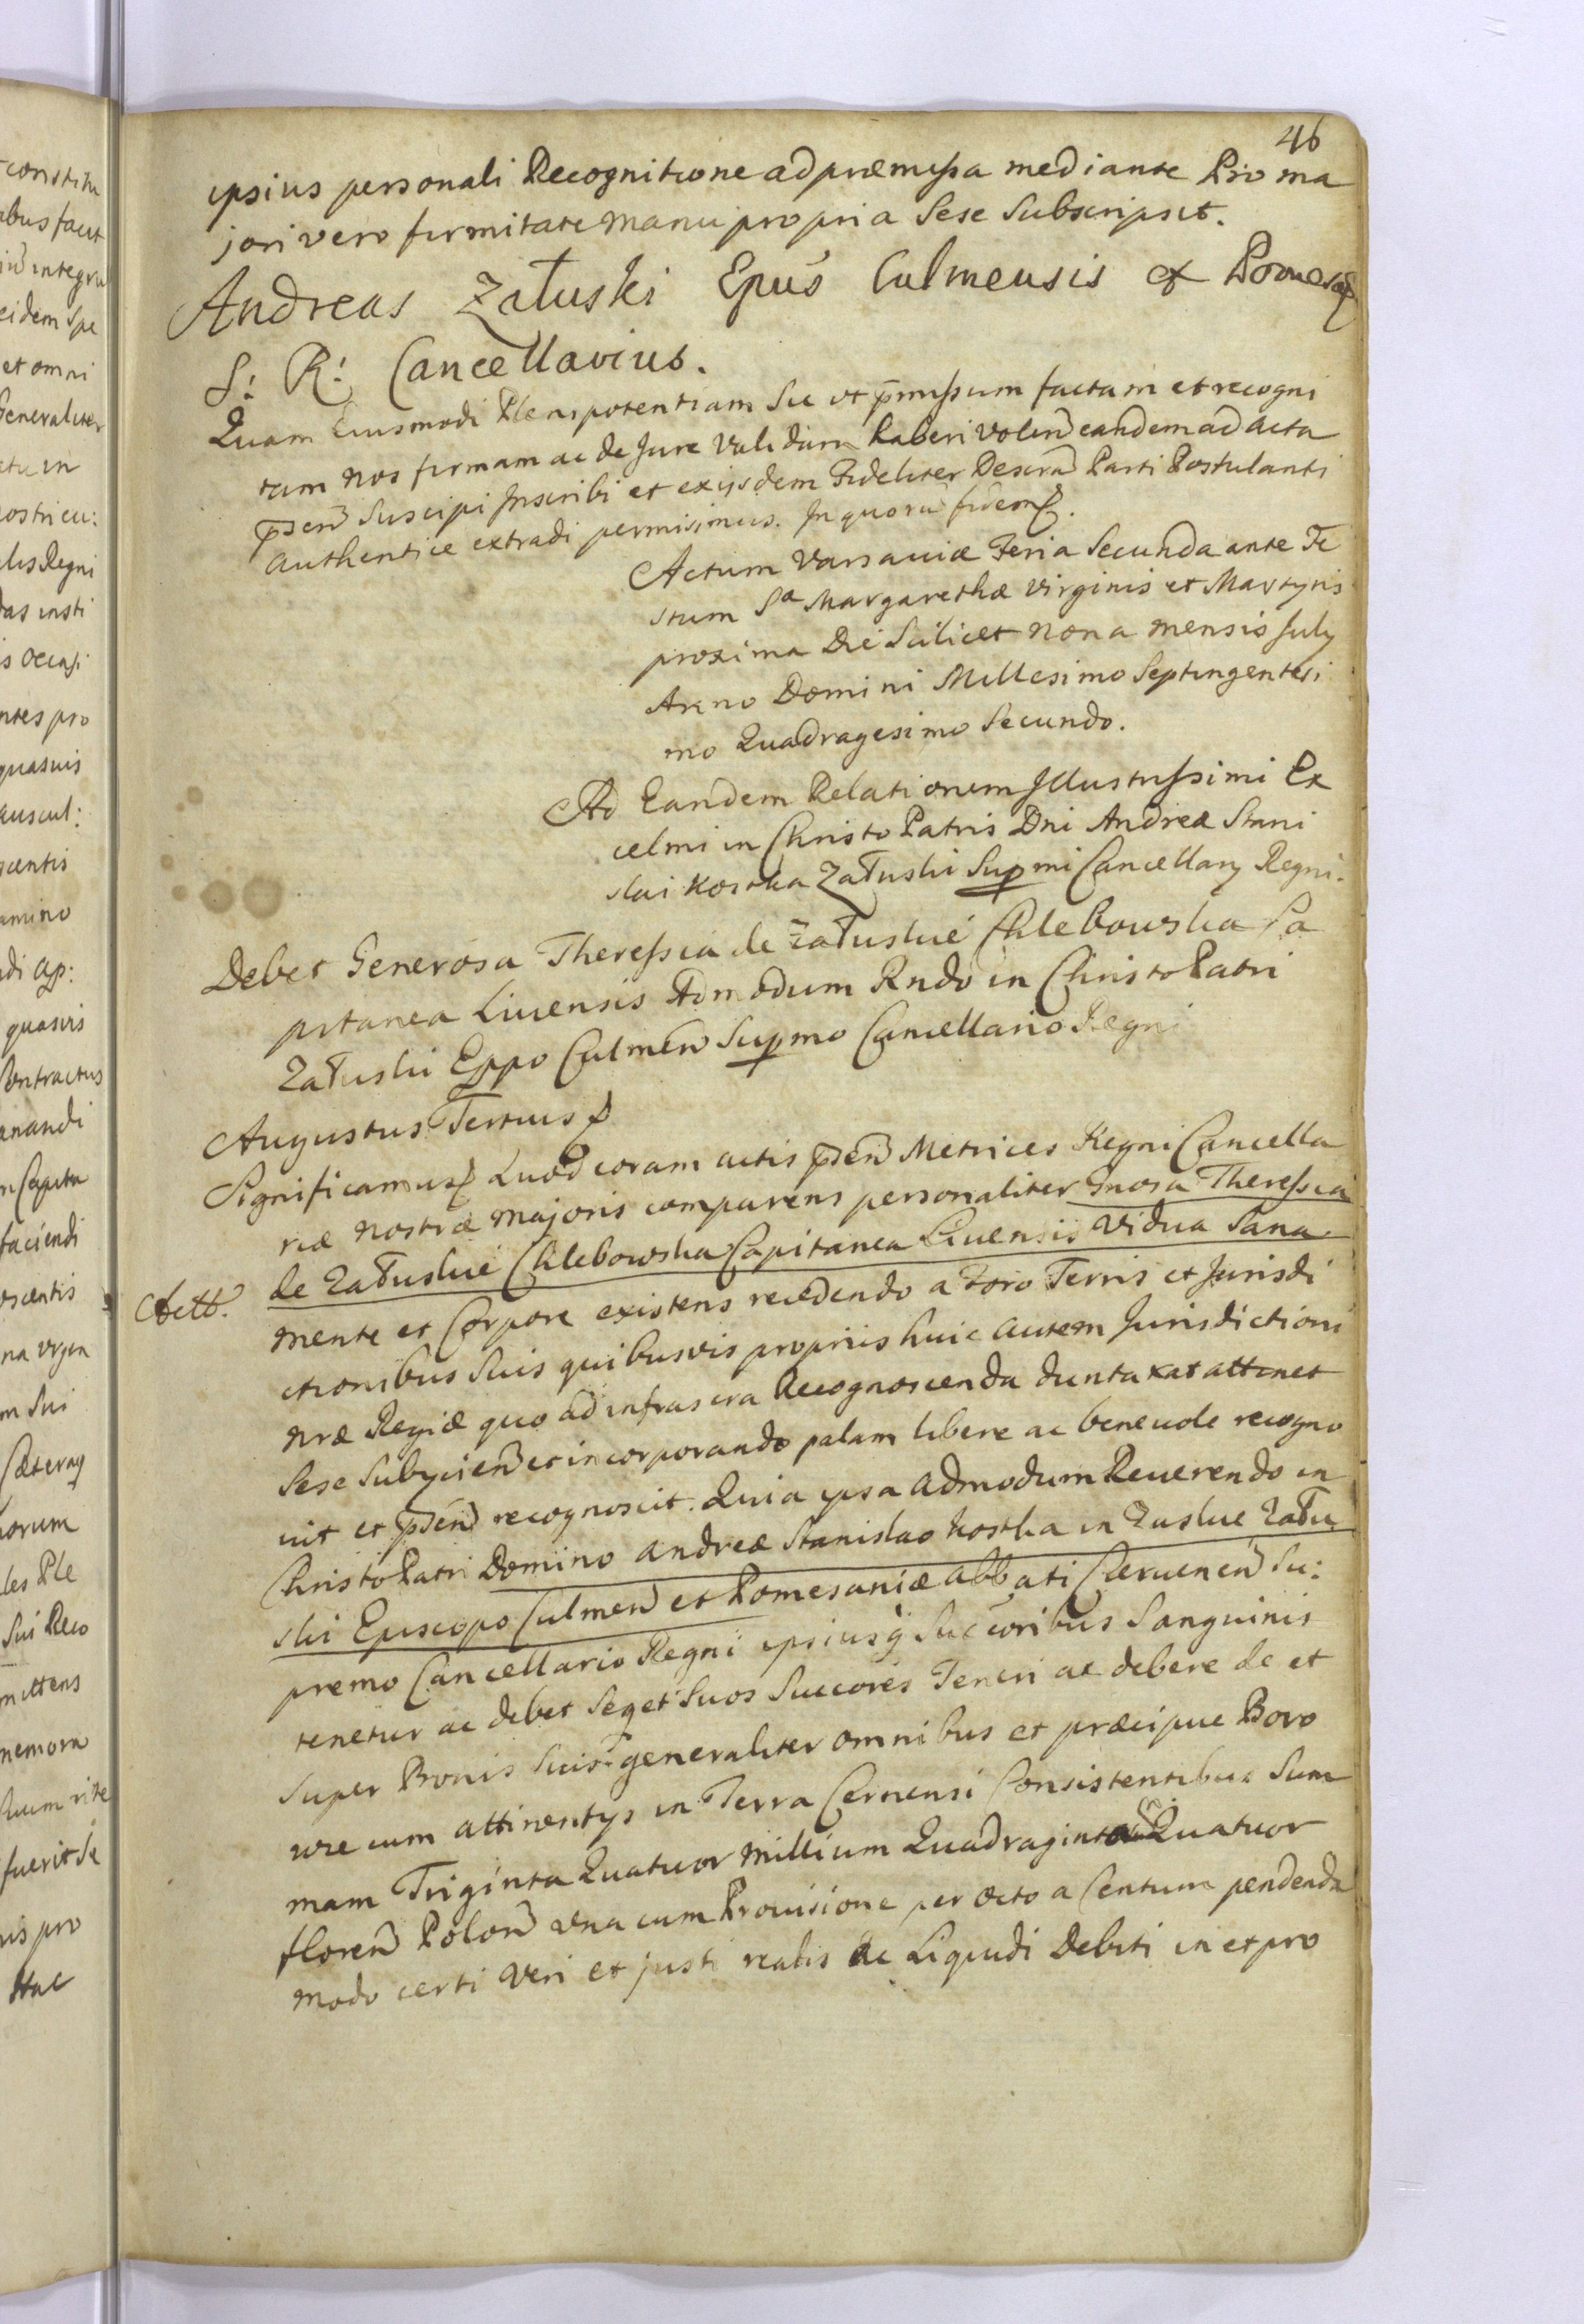 46
ipsius personali Recognitione ad præmissa mediante Pro ma
jori vero firmitate manu propria Sese Subscripsit.
Andreas Załuski Epūs Culmensis et Pomesae
S: R: Cancellarius.
Quam Eiusmodi Plenipotentiam Sic ut p̄missum factam et recogni
tam nos firmam ac de Jure Validam haberi Volen̄ eandem ad acta
p̄sen̄ Suscipi Inscribi et exijsdem Fideliter Descrā Parti Postulanti
authentice extradi permisimus. In quorū fidem.
Actum Varsaviæ Feria Secunda ante Fe
stum Sæ Margarethæ Virginis et Martyris
proxima Die Scilicet nona mensis July
Anno Domini Millesimo Septingentesi
mo Quadragesimo Secundo.
Ad Eandem Relationem Illustrissimi Ex
celmi in Christo Patris Dni Andreæ Stani
slai Kostka Załuski Supmi Cancellarij Regni.
Debet Generosa Theressia de Załuskie Chlebowska Ca
pitanea Livensis Admodum Rndo in Christo Patri
Załuski Eppo Culmen̄ Supmo Cancellario Regni
Augustus Tertius
Significamus Quod coram actis p̄sen̄ Metrices Regni Cancella
riæ nostræ Majoris comparens personaliter Gnosa Theressia
de Załuskie Chlebowska Capitanea Livensis Vidua Sana
mente et Corpore existens recedendo a Foro Terris et Jurisdi
ctionibus Suis quibusvis propriis huic autem Jurisdictioni
nræ Regiæ quo ad infrascra Recognoscenda duntaxat attinet
Sese Subycien̄ et incorporando palam libere ac benevole recogno
vit et p̄sen̄ recognoscit. Quia ipsa admodum Reverendo in
Christo Patri Domino Andreæ Stanislao Kostka in Zuskie Zału
ski Episcopo Culmen̄ et Pomesaniæ abbati Czervenen̄ Su:
premo Cancellario Regni ipsiusq́ Succoribus Sanguinis
tenetur ac debet Seq et Suos Succores Teneri ac debere de et
Super Bonis Suis generaliter omnibus et præcipue Boro
wie cum attinentys in Terra Cernensi Consistentibus Sum
mam Triginta Quatuor millium Quadraginta Quatuor
floren̄ Polon̄ una cum Provisione per octo a Centum pendenda
modo certi Veri et justi realis ac Liquidi Debiti in et pro
constitu
abus facit
integru
eidem Spe
et omni
Generaliter
ostri cu:
alis Regni
das insti
is occasi
ntes pro
quasvis
auscul:
amino
di ap:
quasvis
Contractus
anandi
n Capita
faciendi
na vrgen
m Sui
Cæteraq
orum
les Ple
Sui Reco
mittens
nemora
fuerit Se
is pro
Hac